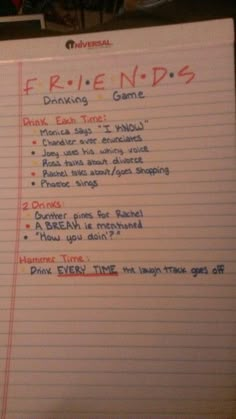 UNIVERSAL
F R•I•E N•D•S
Drinking Game
Drink Each Time:
Monica says "I KNOW"
• Chandler over enunciates
• Joey uses his whiny voice
Ross talks about divorce
• Rachel talks about/goes shopping
• Phoebe sings
2 Drinks:
Gunther pines for Rachel
• A BREAK is mentioned
• "How you doin'?"
Hammer Time:
Drink EVERY TIME the laugh track goes off